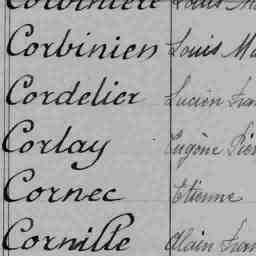 Corbinien Louis
Cordelier Lucien
Corlay Eugène
Cornec Etienne
Cornille Alain